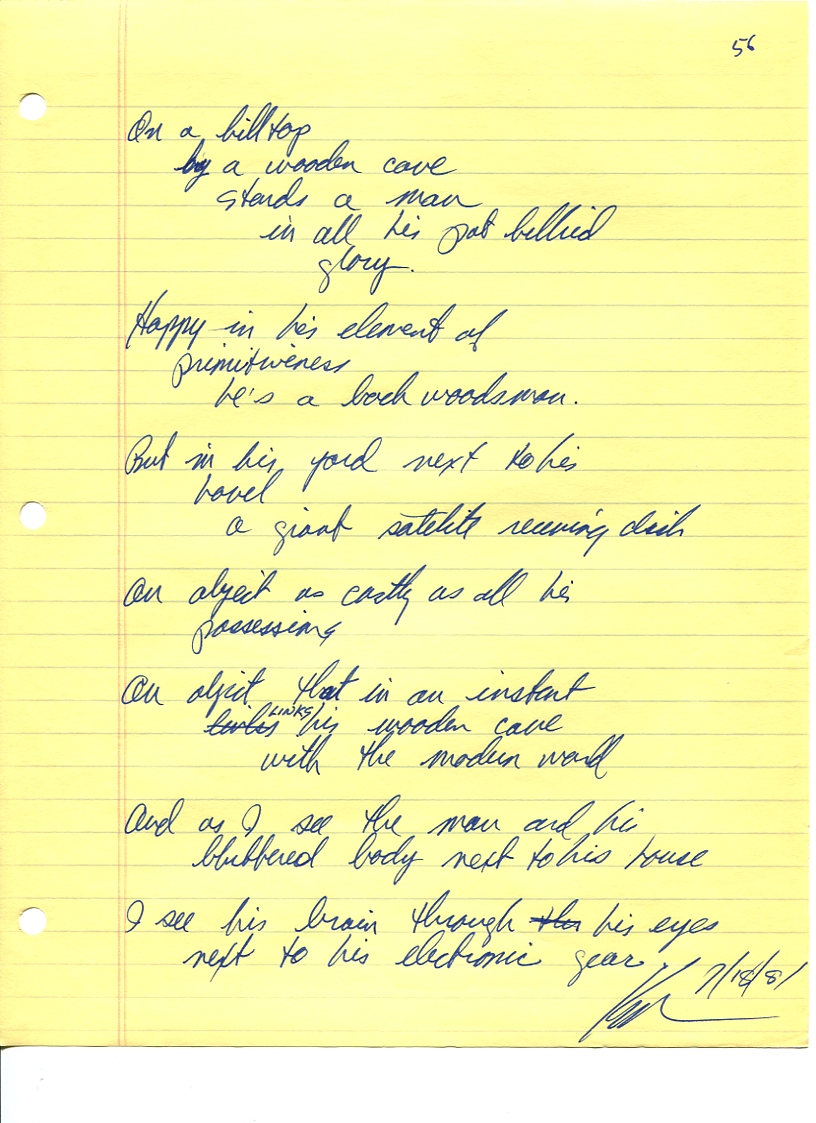 56
On a hilltop
by a wooden cave
stands a man
in all his pot bellied
glory.
Happy in his element of
primitiveness
he's a back woodsman.
But in his yard next to his
hovel
a giant satelite receiving dish
An object as costly as all his
possessions
An object that in an instant
links LINKS his wooden cave
with the modern world
And as I see the man and his
blubbered body next to his house
I see his brain through his eyes
next to his electronic gear
7/18/81